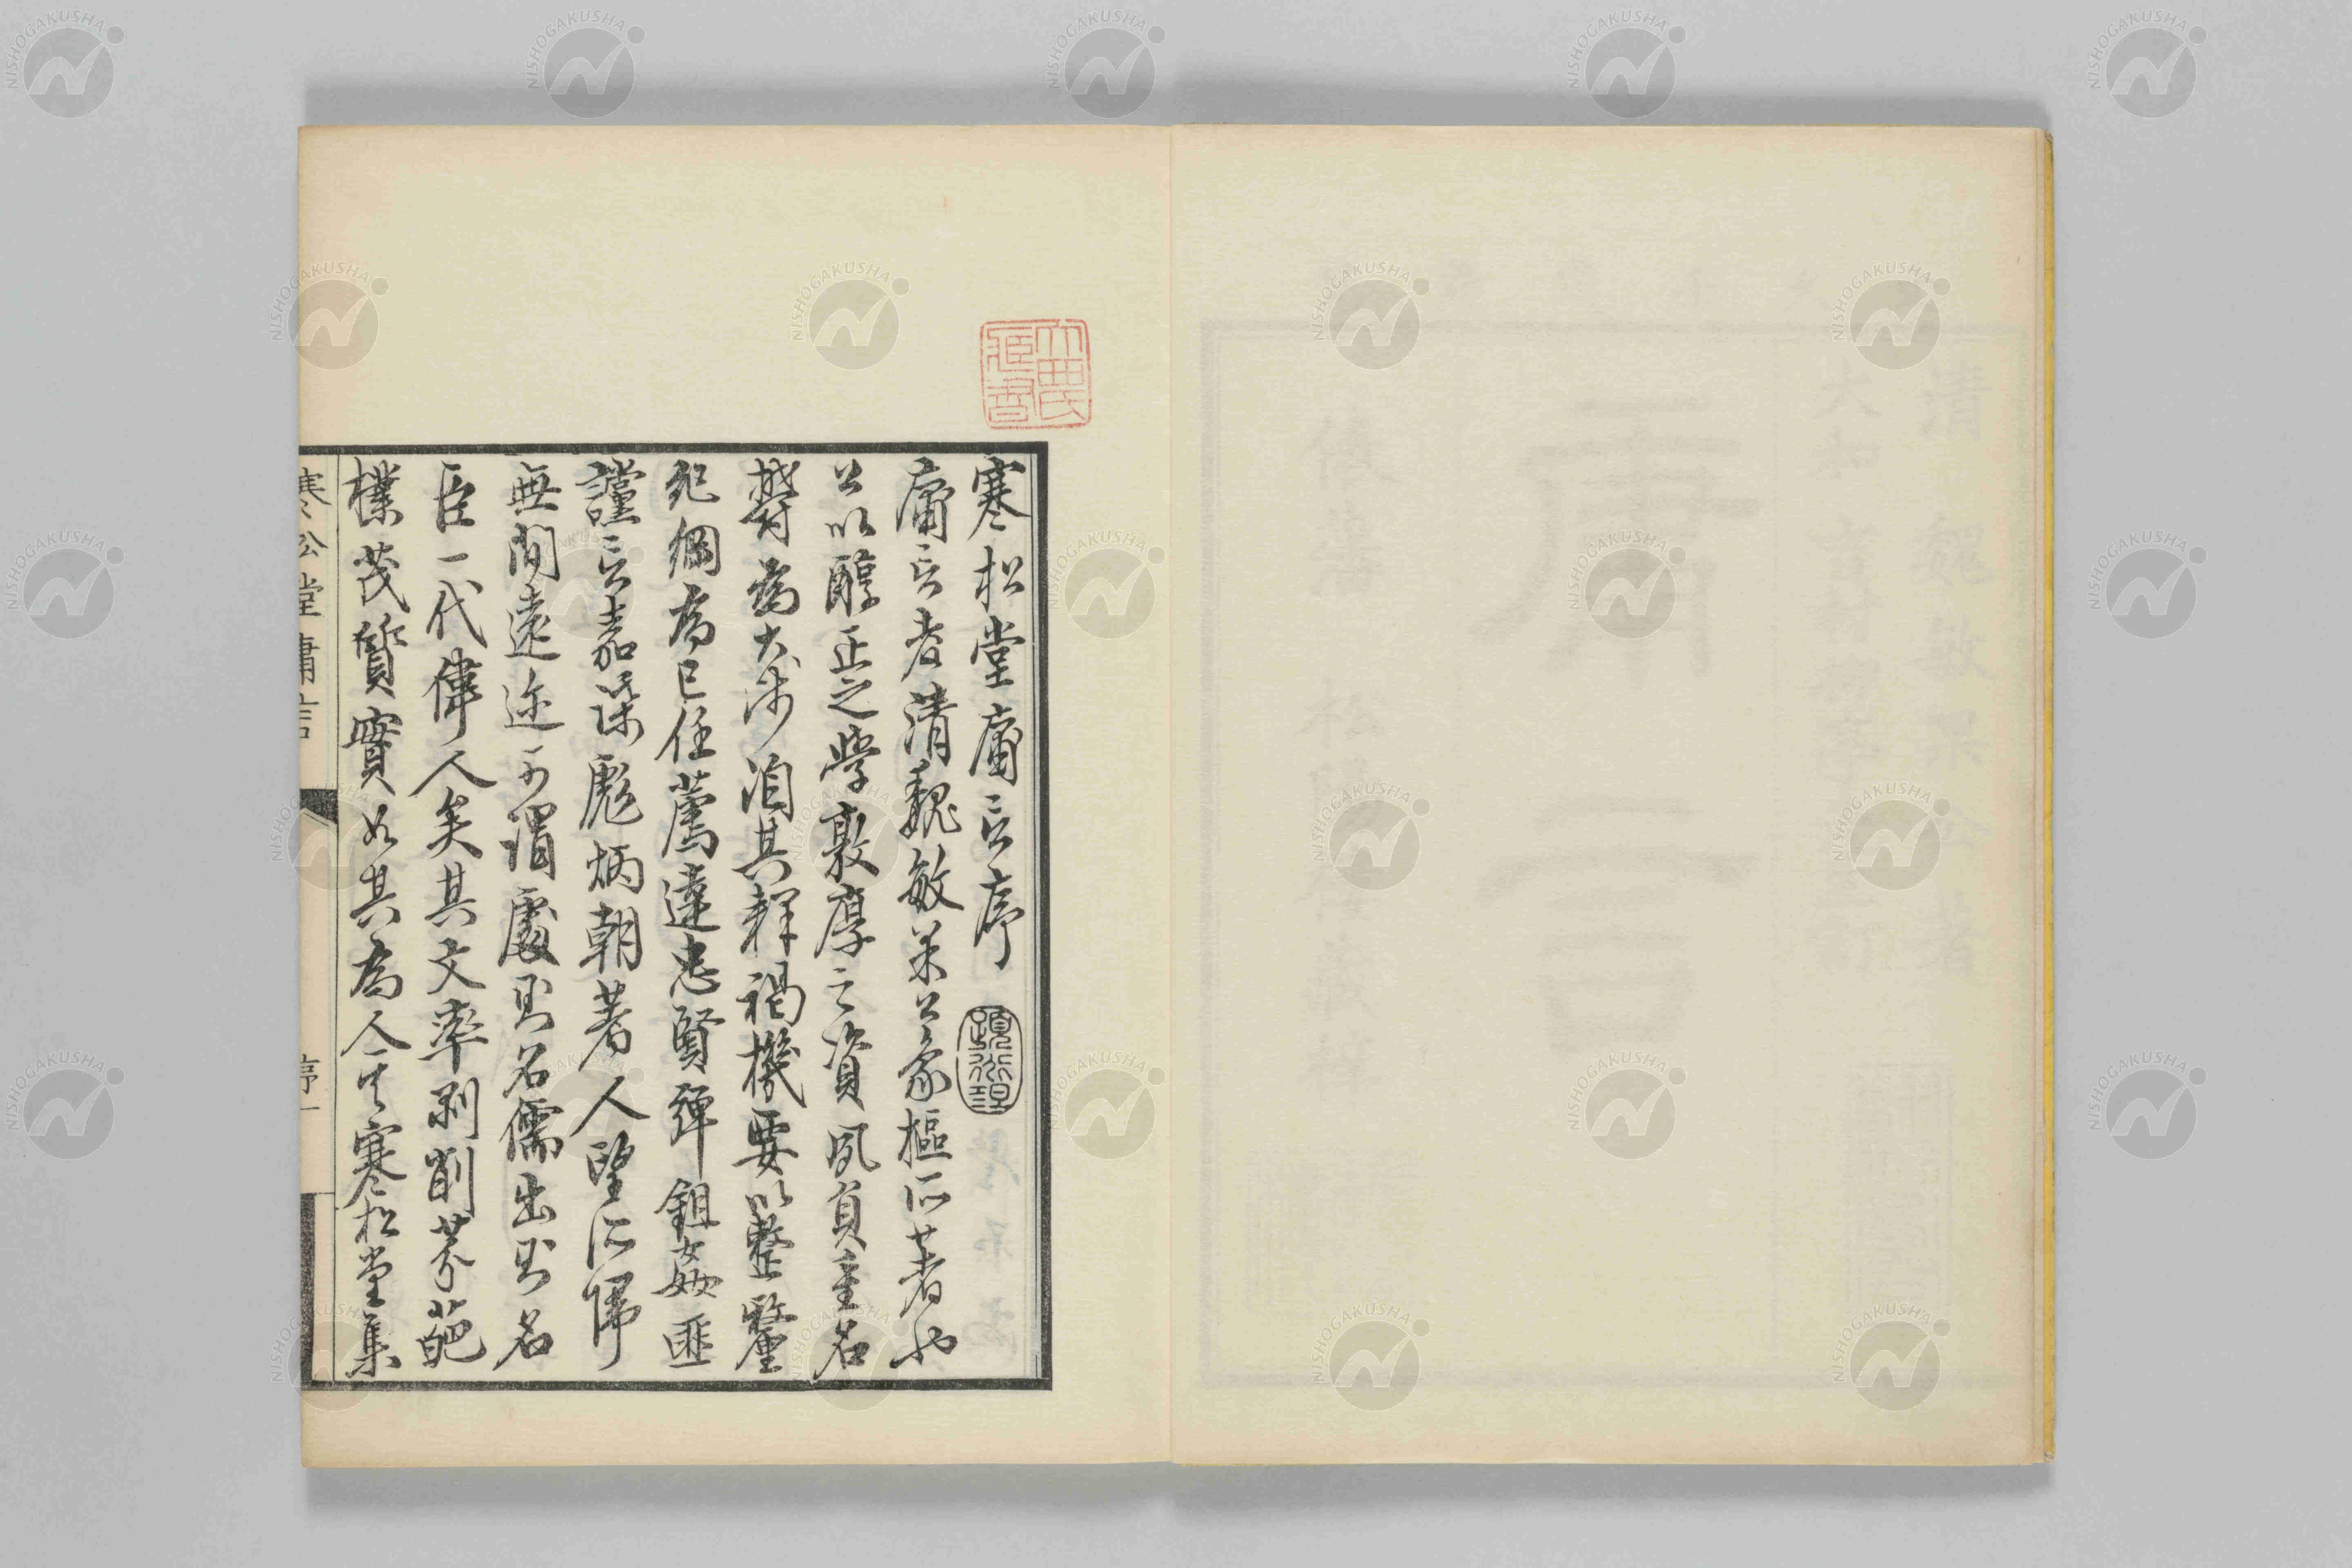 寒松堂庸言序
庸言者清魏敏果公象樞所著也
公以醇正之學敦厚之資夙負重名
欝為大儒洎其釋褐機要以整釐
紀綱為己任薦達忠賢鋤姦匪
讜言嘉謀彪炳朝著人望所歸
無間遠迩可謂處則名儒出則名
臣一代偉人矣其文率剥削芬葩
樸茂質實如其為人其寒松堂集
寒松堂庸言
序一
NISHOGAKUSHA